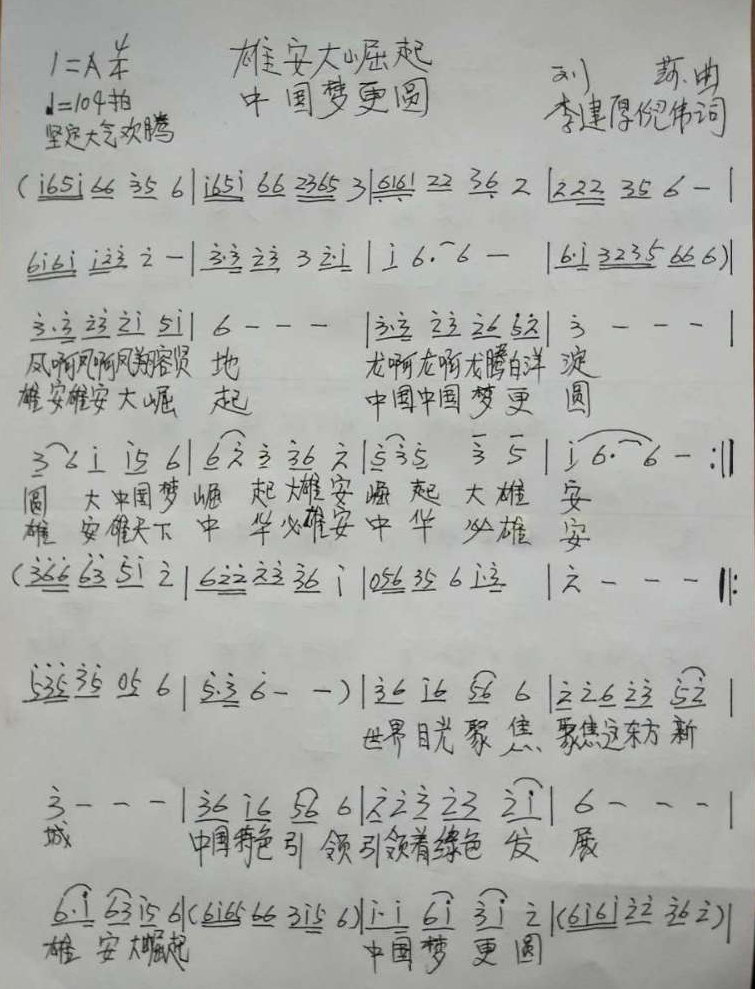 1=A 4/4 雄安大崛起
♩=104拍 中国梦更圆 刘 曲
坚定大气欢腾 李建厚倪伟词
(i651 66 35 6|i651 66 2365 3|6161 22 36 2|222 35 6 -|
6161 i23 2 -|3·3 23 3 2·i|i 6· 6 -|6·i 3235 66 6)|
3·3 23 2i 5i|6 - - -|3·3 23 26 52|3 - - -|
凤啊凤啊凤翔容贤 地 龙啊龙啊龙腾白洋 淀
雄安雄安大崛 起 中国中国梦更 圆
3 6 i i5 6|6 2 3 36 2|5 3 5 3 5|i 6· 6 -:||
圆 大中国梦 崛 起大雄安 崛 起 大雄 安
雄 安雄天下 中 华必雄安 中 华 必雄 安
(366 63 5i 2|622 23 36 i|056 35 6 i·3|2 - - -||:
535 35 05 6|5·3 6 - -)|36 i6 56 6|2 26 23 52|
世界目光聚 焦 聚焦这东方 新
3 - - -|36 i6 56 6|2 2 3 23 2i|6 - - -|
城 中国特色引 领引领着绿色 发 展
6·i 63 i5 6|(6i65 66 3i5 6)|i·i 6i 3i 2|(6i6i 22 36 2)|
雄 安大崛起 中国梦 更 圆